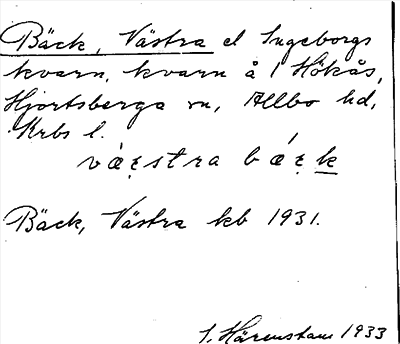 Bäck, Västra el Ingeborgs
kvarn, kvarn å 1 Hökås,
Hjortsberga sn, Allbo hd,
Krbs l.
væ̀stra bǽk
Bäck, Västra kb 1931.
S. Härenstam 1933